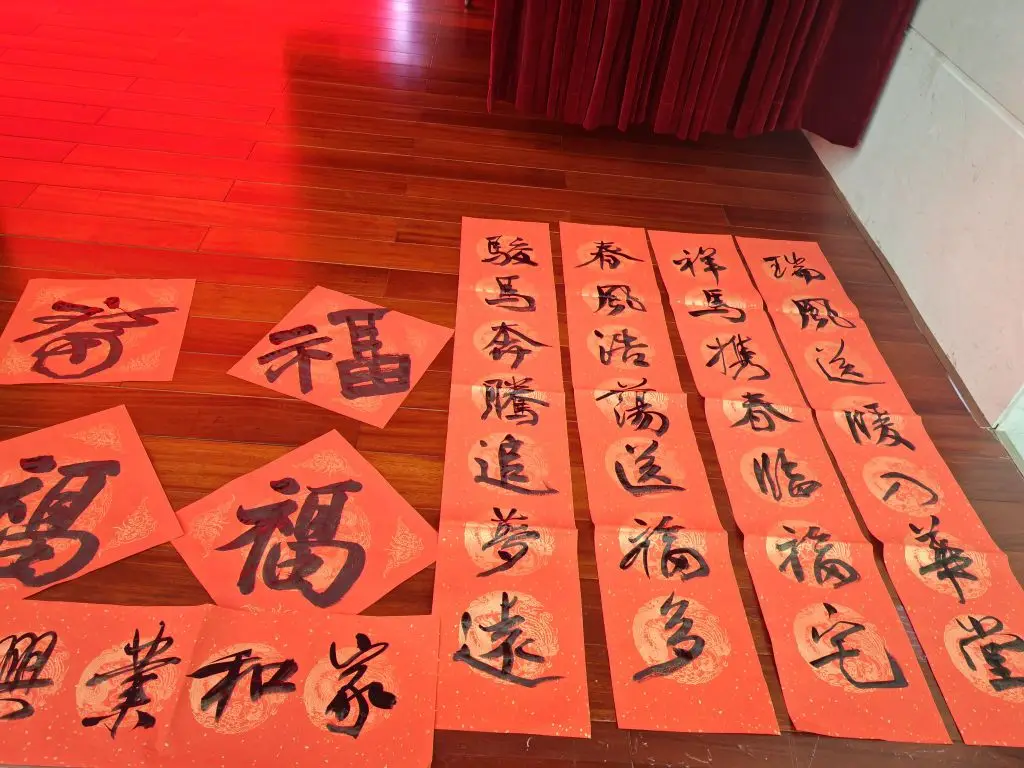 駿馬奔騰追夢遠
春風浩蕩送福多
祥馬携春臨福宅
瑞風送暖入華堂
福
福
福
福
家和業興